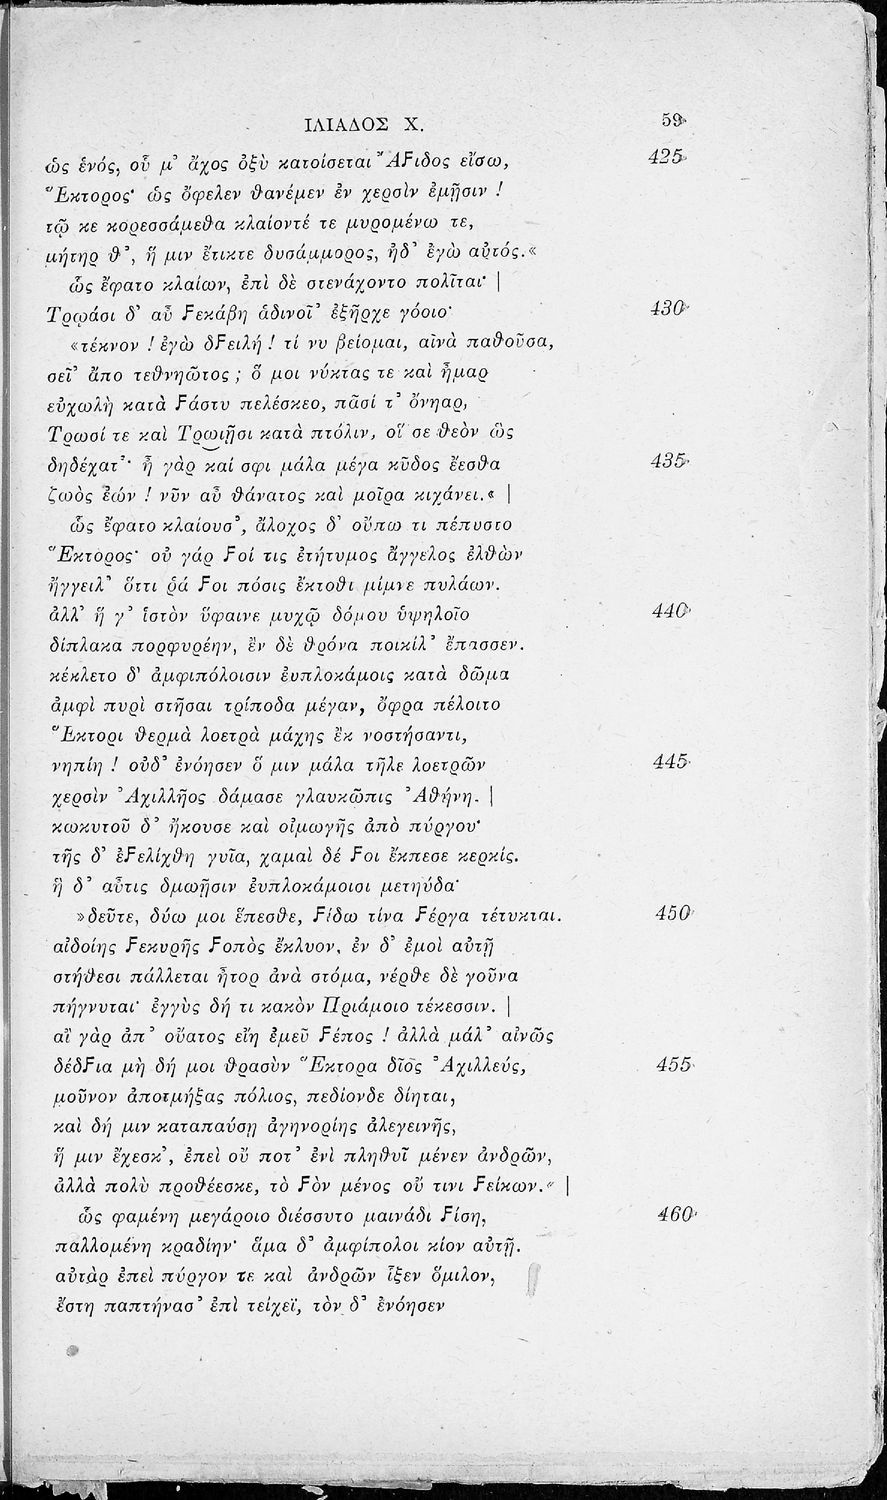 ΙΛΙΑΔΟΣ Χ. 59
ὡς ἑνός, οὗ μ’ ἄχος ὀξὺ κατοίσεται Ἄϝιδος εἴσω, 425
Ἕκτορος· ὡς ὄφελεν θανέμεν ἐν χερσὶν ἐμῇσιν !
τῷ κε κορεσσάμεθα κλαίοντέ τε μυρομένω τε,
μήτηρ θ’, ἥ μιν ἔτικτε δυσάμμορος, ἠδ’ ἐγὼ αὐτός.«
ὣς ἔφατο κλαίων, ἐπὶ δὲ στενάχοντο πολῖται· |
Τρῳάσι δ’ αὖ Ϝεκάβη ἁδινοῖ’ ἐξῆρχε γόοιο· 430
«τέκνον ! ἐγὼ δϝειλή ! τί νυ βείομαι, αἰνὰ παθοῦσα,
σεῖ’ ἄπο τεθνηῶτος ; ὅ μοι νύκτας τε καὶ ἦμαρ
εὐχωλὴ κατὰ Ϝάστυ πελέσκεο, πᾶσί τ’ ὄνηαρ,
Τρωσί τε καὶ Τρωιῇσι κατὰ πτόλιν, οἵ σε θεὸν ὣς
δηδέχατ’· ἦ γὰρ καί σφι μάλα μέγα κῦδος ἔεσθα 435
ζωὸς ἐών ! νῦν αὖ θάνατος καὶ μοῖρα κιχάνει.« |
ὣς ἔφατο κλαίουσ’, ἄλοχος δ’ οὔπω τι πέπυστο
Ἕκτορος· οὐ γάρ Ϝοί τις ἐτήτυμος ἄγγελος ἐλθὼν
ἤγγειλ’ ὅττι ῥά Ϝοι πόσις ἔκτοθι μίμνε πυλάων.
ἀλλ’ ἥ γ’ ἱστὸν ὕφαινε μυχῷ δόμου ὑψηλοῖο 440
δίπλακα πορφυρέην, ἒν δὲ θρόνα ποικίλ’ ἔπασσεν.
κέκλετο δ’ ἀμφιπόλοισιν ἐυπλοκάμοις κατὰ δῶμα
ἀμφὶ πυρὶ στῆσαι τρίποδα μέγαν, ὄφρα πέλοιτο
Ἕκτορι θερμὰ λοετρὰ μάχης ἒκ νοστήσαντι,
νηπίη ! οὐδ’ ἐνόησεν ὅ μιν μάλα τῆλε λοετρῶν 445
χερσὶν Ἀχιλλῆος δάμασε γλαυκῶπις Ἀθήνη. |
κωκυτοῦ δ’ ἤκουσε καὶ οἰμωγῆς ἀπὸ πύργου·
τῆς δ’ ἐϝελίχθη γυῖα, χαμαὶ δέ Ϝοι ἔκπεσε κερκίς.
ἣ δ’ αὖτις δμωῇσιν ἐυπλοκάμοισι μετηύδα·
»δεῦτε, δύω μοι ἕπεσθε, Ϝίδω τίνα Ϝέργα τέτυκται. 450
αἰδοίης Ϝεκυρῆς Ϝοπὸς ἔκλυον, ἐν δ’ ἐμοὶ αὐτῇ
στήθεσι πάλλεται ἦτορ ἀνὰ στόμα, νέρθε δὲ γοῦνα
πήγνυται· ἐγγὺς δή τι κακὸν Πριάμοιο τέκεσσιν. |
αἲ γὰρ ἀπ’ οὔατος εἴη ἐμεῦ Ϝέπος ! ἀλλὰ μάλ’ αἰνῶς
δέδϝια μὴ δή μοι θρασὺν Ἕκτορα δῖος Ἀχιλλεύς, 455
μοῦνον ἀποτμήξας πόλιος, πεδίονδε δίηται,
καὶ δή μιν καταπαύσῃ ἀγηνορίης ἀλεγεινῆς,
ἥ μιν ἔχεσκ’, ἐπεὶ οὔ ποτ’ ἐνὶ πληθυῖ μένεν ἀνδρῶν,
ἀλλὰ πολὺ προθέεσκε, τὸ Ϝὸν μένος οὔ τινι Ϝείκων.« |
ὣς φαμένη μεγάροιο διέσσυτο μαινάδι Ϝίση, 460
παλλομένη κραδίην· ἅμα δ’ ἀμφίπολοι κίον αὐτῇ.
αὐτὰρ ἐπεὶ πύργον τε καὶ ἀνδρῶν ἷξεν ὅμιλον,
ἔστη παπτήνασ’ ἐπὶ τείχεϊ, τὸν δ’ ἐνόησεν